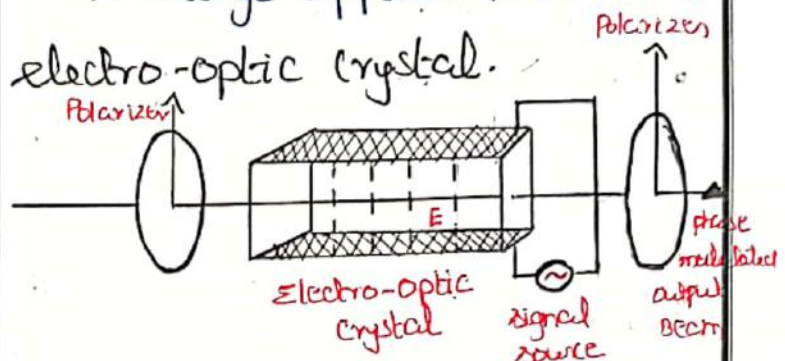 electro-optic crystal.
Polarizer
Polarizer
E
Electro-Optic
crystal
signal
source
phase
modulated
output
BEAM